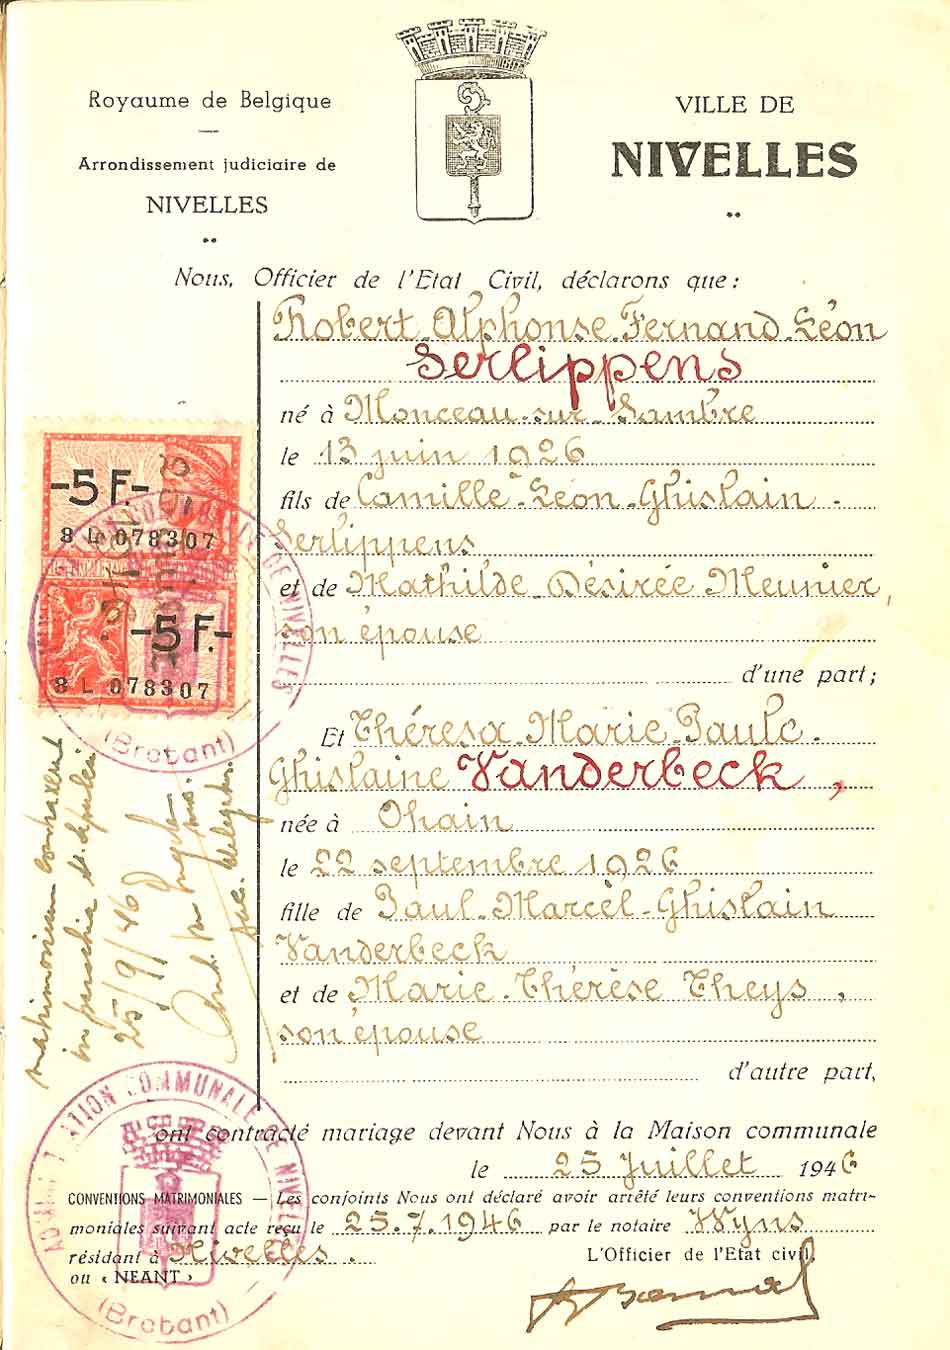 Royaume de Belgique
Arrondissement judiciaire de
NIVELLES
VILLE DE
NIVELLES
Nous, Officier de l'Etat Civil, déclarons que :
Robert Alphonse Fernand Léon
Serlippens
né à Monceau-sur-Sambre
le 13 juin 1926
fils de Camille-Léon-Ghislain
Serlippens
et de Mathilde Désirée Meunier,
son épouse
d'une part;
Et Thérésa Marie Paule
Ghislaine Vanderbeck,
née à Ohain
le 22 septembre 1926
fille de Paul Marcel Ghislain
Vanderbeck
et de Marie-Thérèse Theys,
son épouse
d'autre part,
ont contracté mariage devant Nous à la Maison communale
le 25 Juillet 1946
CONVENTIONS MATRIMONIALES — Les conjoints Nous ont déclaré avoir arrêté leurs conventions matri-
moniales suivant acte reçu le 25.7.1946 par le notaire Wyns
résidant à Nivelles.
ou « NEANT »
L'Officier de l'Etat civil,
-5 F-
8 L 078307
-5 F.-
8 L 078307
DE NIVELLES
(Brabant)
matrimonium contraxerunt
in parochia St. Sepulcri
25/9/46
ADMINISTRATION COMMUNALE DE NIVELLES
(Brabant)